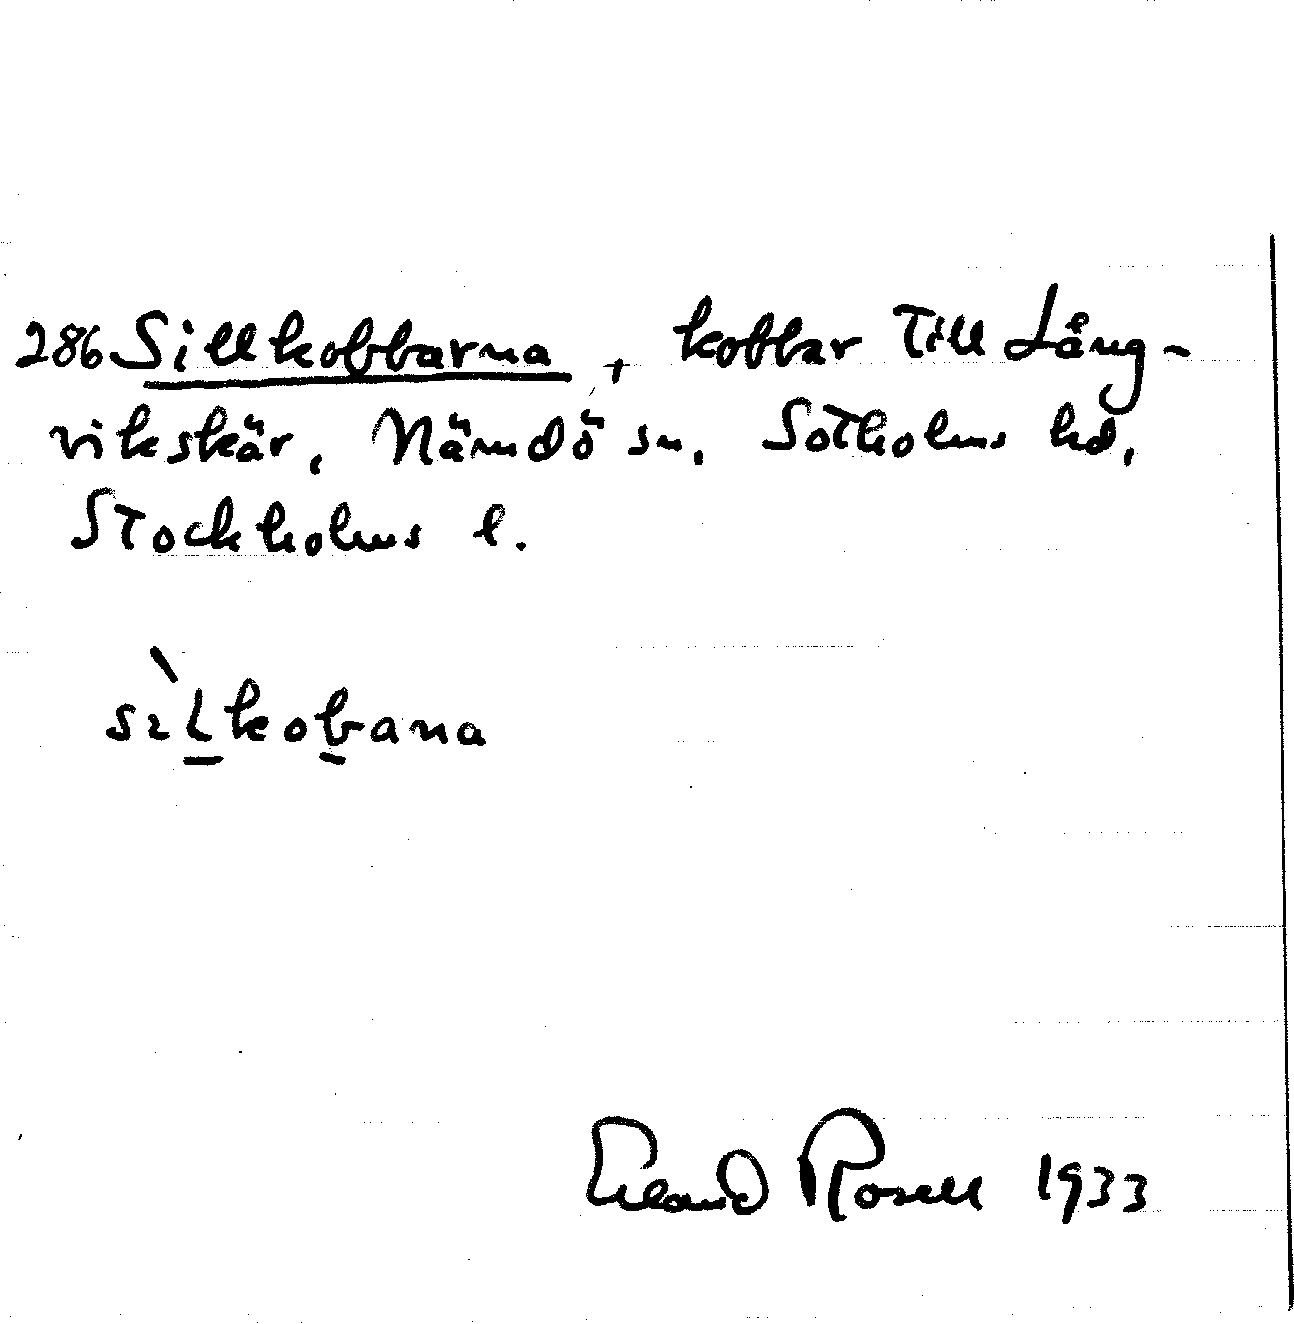 286 Sillkobbarna, kobbar till Lång-
vikskär, Nämdö sn, Sotholms hd,
Stockholms l.
sìlkobana
Erland Rosell 1933